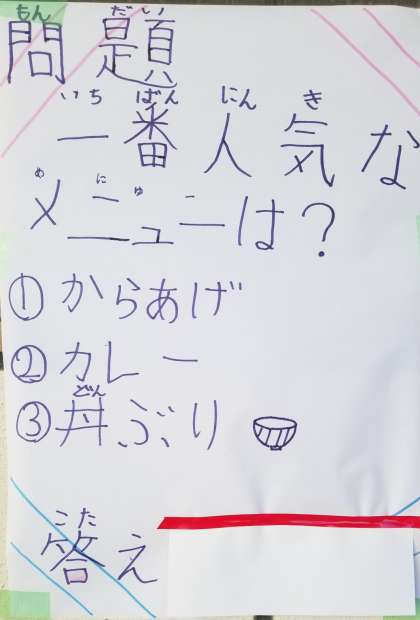 もん だい
問題
いち ばん にん き
一番人気な
め に ゅ
メニューは?
①からあげ
②カレー
どん
③丼ぶり
こた
答え